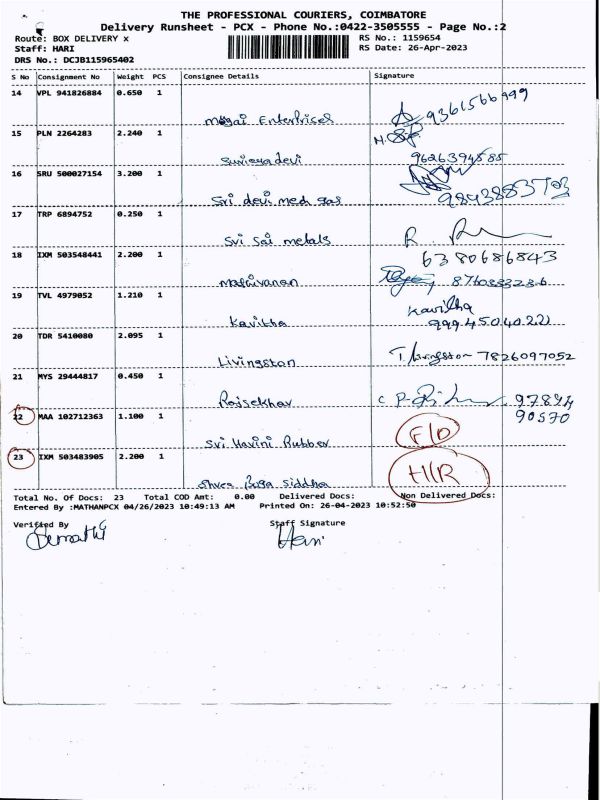 THE PROFESSIONAL COURIERS, COIMBATORE
Delivery Runsheet - PCX - Phone No.:0422-3505555 - Page No.:2
Route: BOX DELIVERY x
RS No.: 1159654
Staff: HARI
RS Date: 26-Apr-2023
DRS No.: DCJB115965402
S No Consignment No Weight PCS Consignee Details Signature
14 VPL 941826884 0.650 1
Enterprises 9361566999
15 PLN 2264283 2.240 1
Suriyadevi 9626394585
16 SRU 500027154 3.200 1
Sri devi med gas 9843883703
17 TRP 6894752 0.250 1
Sri Sai metals R
18 IXM 503548441 2.200 1 6380686843
Mathivanan 8760333236
19 TVL 4979052 1.210 1 Kavitha
Kavitha 9994504022
20 TDR 5410080 2.095 1
Livingston T. Livingston 7826097052
21 MYS 29444817 0.450 1
Rajsekhar C. P. 97894
22 MAA 102712363 1.100 1 90570
Sri Harini Rubber F/D
23 IXM 503483905 2.200 1
Siddha H/R
Total No. Of Docs: 23 Total COD Amt: 0.00 Delivered Docs: Non Delivered Docs:
Entered By :MATHANPCX 04/26/2023 10:49:13 AM Printed On: 26-04-2023 10:52:50
Verified By Staff Signature
Hari